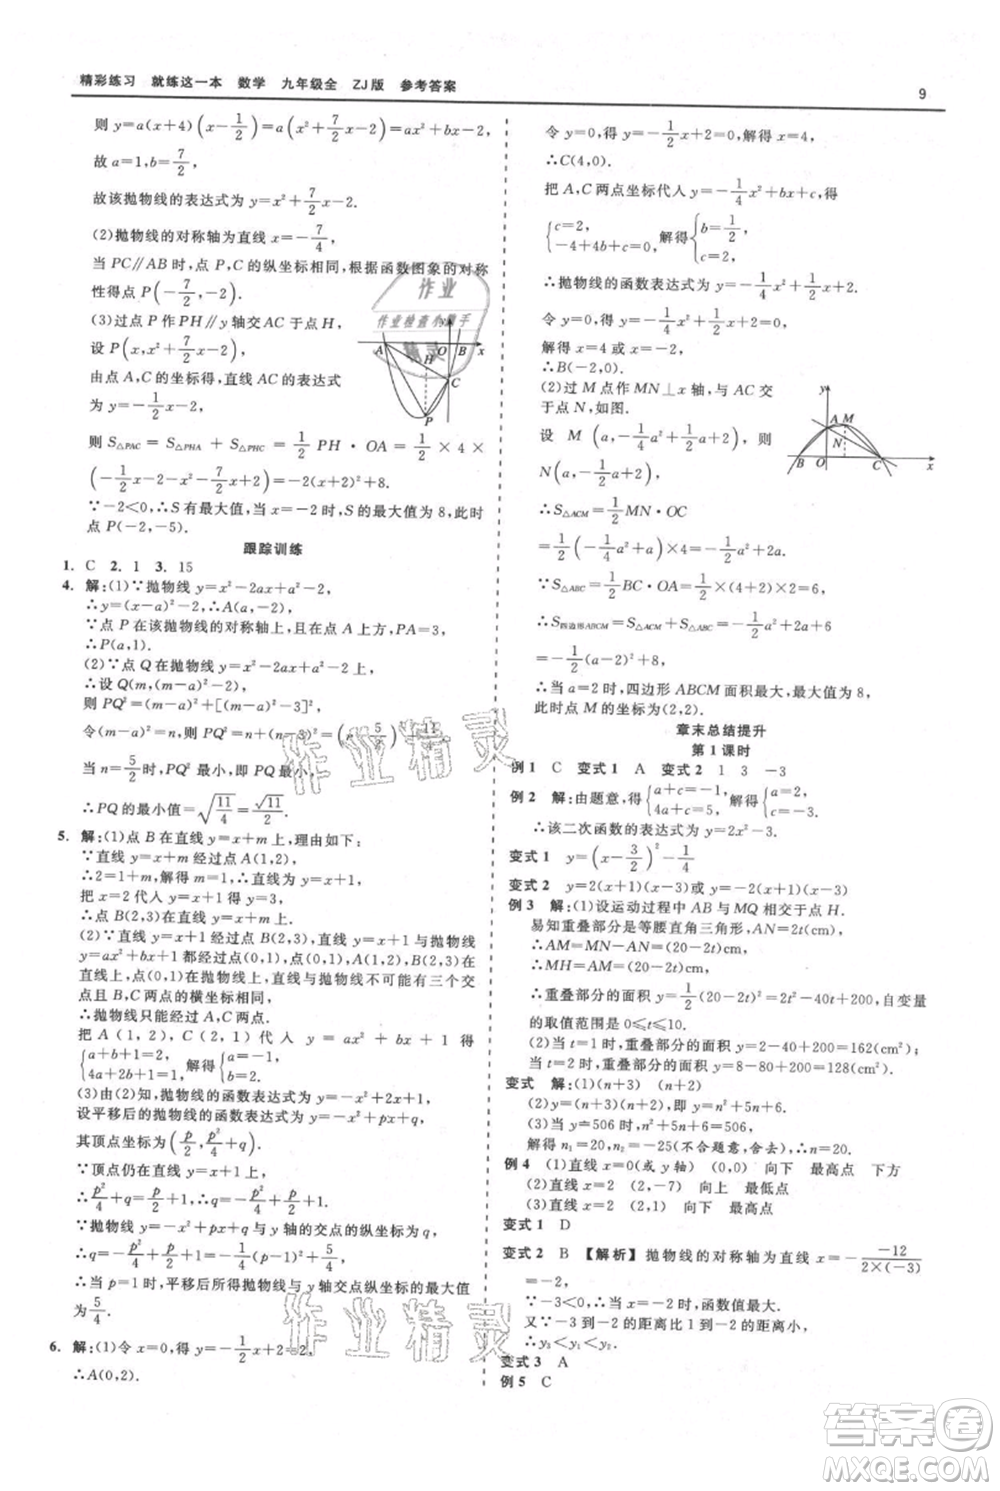 精彩练习 就练这一本 数学 九年级全 ZJ版 参考答案
9
则 y=a(x+4)(x-1/2)=a(x²+7/2x-2)=ax²+bx-2.
故 a=1,b=7/2,
故该抛物线的表达式为 y=x²+7/2x-2.
(2)抛物线的对称轴为直线 x=-7/4,
当 PC∥AB 时,点 P,C 的纵坐标相同,根据函数图象的对称
性得点 P(-7/2,-2).
(3)过点 P 作 PH∥y 轴交 AC 于点 H,
设 P(x,x²+7/2x-2),
由点 A,C 的坐标得,直线 AC 的表达式
为 y=-1/2x-2,
则 S△PAC=S△PHA+S△PHC=1/2PH·OA=1/2×4×
(-1/2x-2-x²-7/2x+2)=-2(x+2)²+8.
∵-2<0,∴S 有最大值,当 x=-2 时,S 的最大值为 8,此时
点 P(-2,-5).
跟踪训练
1. C 2. 1 3. 15
4. 解:(1)∵抛物线 y=x²-2ax+a²=(x-a)²,
∴y=(x-a)²,∴A(a,0).
∵点 P 在该抛物线的对称轴上,PA=3,
∴P(a,1).
(2)∵点 Q 在抛物线 y=x²-2ax+a² 上,
∴设 Q(m,(m-a)²),
则 PQ²=(m-a)²+[(m-a)²-3]²,
令(m-a)²=n,则 PQ²=n+(n-3)²=(n-5/2)²+11/4.
当 n=5/2 时,PQ² 最小,即 PQ 最小,
∴PQ 的最小值=√(11/4)=√11/2.
5. 解:(1)点 B 在直线 y=x+m 上,理由如下:
∵直线 y=x+m 经过点 A(1,2),
∴2=1+m,解得 m=1,∴直线为 y=x+1.
把 x=2 代入 y=x+1 得 y=3,
∴点 B(2,3)在直线 y=x+m 上.
(2)∵直线 y=x+1 与抛物线 y=ax²+bx+1
都经过点(0,1),点(0,1),A(1,2),B(2,3)在
直线上,点(0,1),A,B 在直线与抛物线不可能有三个交
点,且 B,C 两点的横坐标相同,
∴抛物线只能经过 A,C 两点.
把 A(1,2),C(2,1)代入 y=ax²+bx+1 得
{a+b+1=2, 4a+2b+1=1, 解得{a=-1, b=2.
(3)由(2)得抛物线的函数表达式为 y=-x²+2x+1,
设平移后的抛物线的函数表达式为 y=-x²+px+q,
其顶点坐标为(p/2,p²/4+q),
∵顶点仍在直线 y=x+1 上,
∴p²/4+q=p/2+1,∴q=-p²/4+p/2+1.
∵抛物线 y=-x²+px+q 与 y 轴的交点的纵坐标为 q,
∴q=-p²/4+p/2+1=-1/4(p-1)²+5/4,
∴当 p=1 时,平移后所得抛物线与 y 轴交点纵坐标的最大值
为5/4.
6. 解:(1)令 x=0,得 y=-1/2x+2=2,
∴A(0,2).
令 y=0,得 y=-1/2x+2=0,解得 x=4,
∴C(4,0).
把 A,C 两点坐标代入 y=-1/4x²+bx+c,得
{c=2, -4+4b+c=0, 解得{b=1/2, c=2,
∴抛物线的函数表达式为 y=-1/4x²+1/2x+2.
令 y=0,得-1/4x²+1/2x+2=0,
解得 x=4 或 x=-2,
∴B(-2,0).
(2)过 M 点作 MN⊥x 轴,与 AC 交
于点 N,如图.
设 M(a,-1/4a²+1/2a+2),则
N(a,-1/2a+2).
∴S△ACM=1/2MN·OC
=-1/2a²+2a.
∵S△ABC=1/2BC·OA=1/2×(4+2)×2=6,
∴S四边形ABCM=S△ACM+S△ABC=-1/2a²+2a+6
=-1/2(a-2)²+8,
∴当 a=2 时,四边形 ABCM 面积最大,最大值为 8,
此时点 M 的坐标为(2,2).
章末总结提升
第 1 课时
例 1 C 变式 1 A 变式 2 1 3 -3
例 2 解:由题意,得{a+c=-1, 4a+c=5, 解得{a=2, c=-3.
∴该二次函数的表达式为 y=2x²-3.
变式 1 y=(x-3/2)²-1/4
变式 2 y=2(x+1)(x-1)=2x²-2
例 3 解:(1)设运动过程中 AB 与 MQ 相交于点 H.
易知重叠部分是等腰直角三角形,AN=2t cm,
∴AM=MN-AN=(20-2t)cm,
∴MH=AM=(20-2t)cm,
∴重叠部分的面积为 y=1/2(20-2t)²=2t²-40t+200,自变量
的取值范围是 0≤t≤10.
(2)当 t=1 时,重叠部分的面积 y=2-40+200=162(cm²);
当 t=2 时,重叠部分的面积 y=8-80+200=128(cm²).
变式 解:(1)(n+3) (n+2)
(2)y=(n+3)(n+2),即 y=n²+5n+6.
(3)当 y=506 时,n²+5n+6=506,
解得 n₁=20,n₂=-25(不合题意,舍去),∴n=20.
例 4 (1)直线 x=0(或 y 轴) (0,2) 向下 最高点 下方
(2)直线 x=0 (0,7) 向上 最低点
(3)直线 x=2 (2,1) 向下 最高点
变式 1 D
变式 2 B 【解析】抛物线的对称轴为直线 x=-(-12)/(2×(-3))
=-2.
∵-3<0,∴x=-2 时,函数值最大.
又∵-3 到-2 的距离比 1 到-2 的距离小,
∴y₃<y₁<y₂.
变式 3 A
例 5 C
作业
作业检查小帮手
精灵
作业精灵
作业精灵
答案卷
MXQE.COM